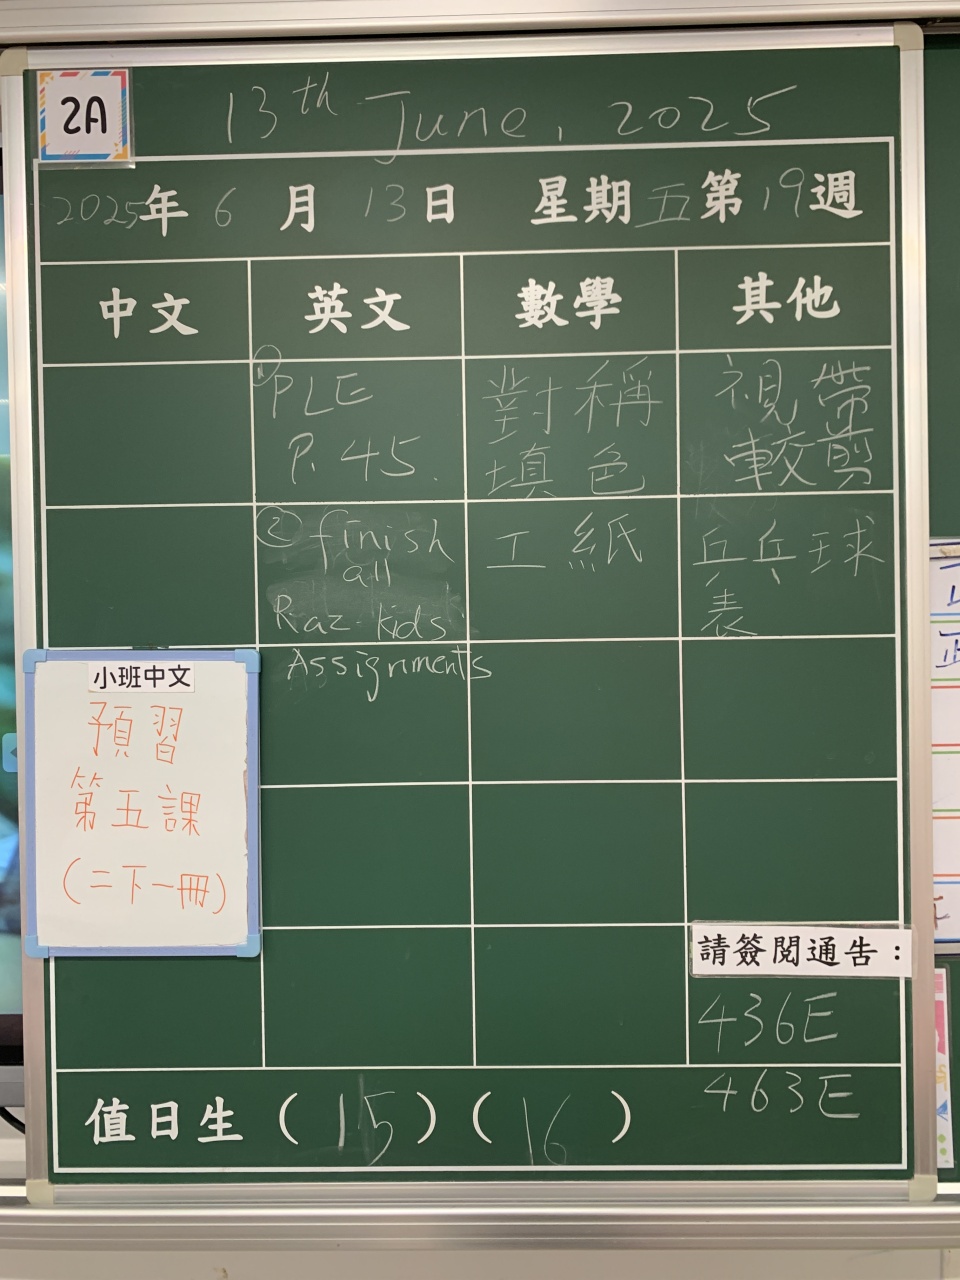 2A
13th June, 2025
2025年 6 月 13日 星期五第19週
中文 英文 數學 其他
① PLE
P. 45.
對稱
填色
視帶
較剪
② finish
all
Raz-kids
Assignments
工紙
乒乓球
表
小班中文
預習
第五課
(二下一冊)
請簽閱通告：
436E
463E
值日生 (15) (16)